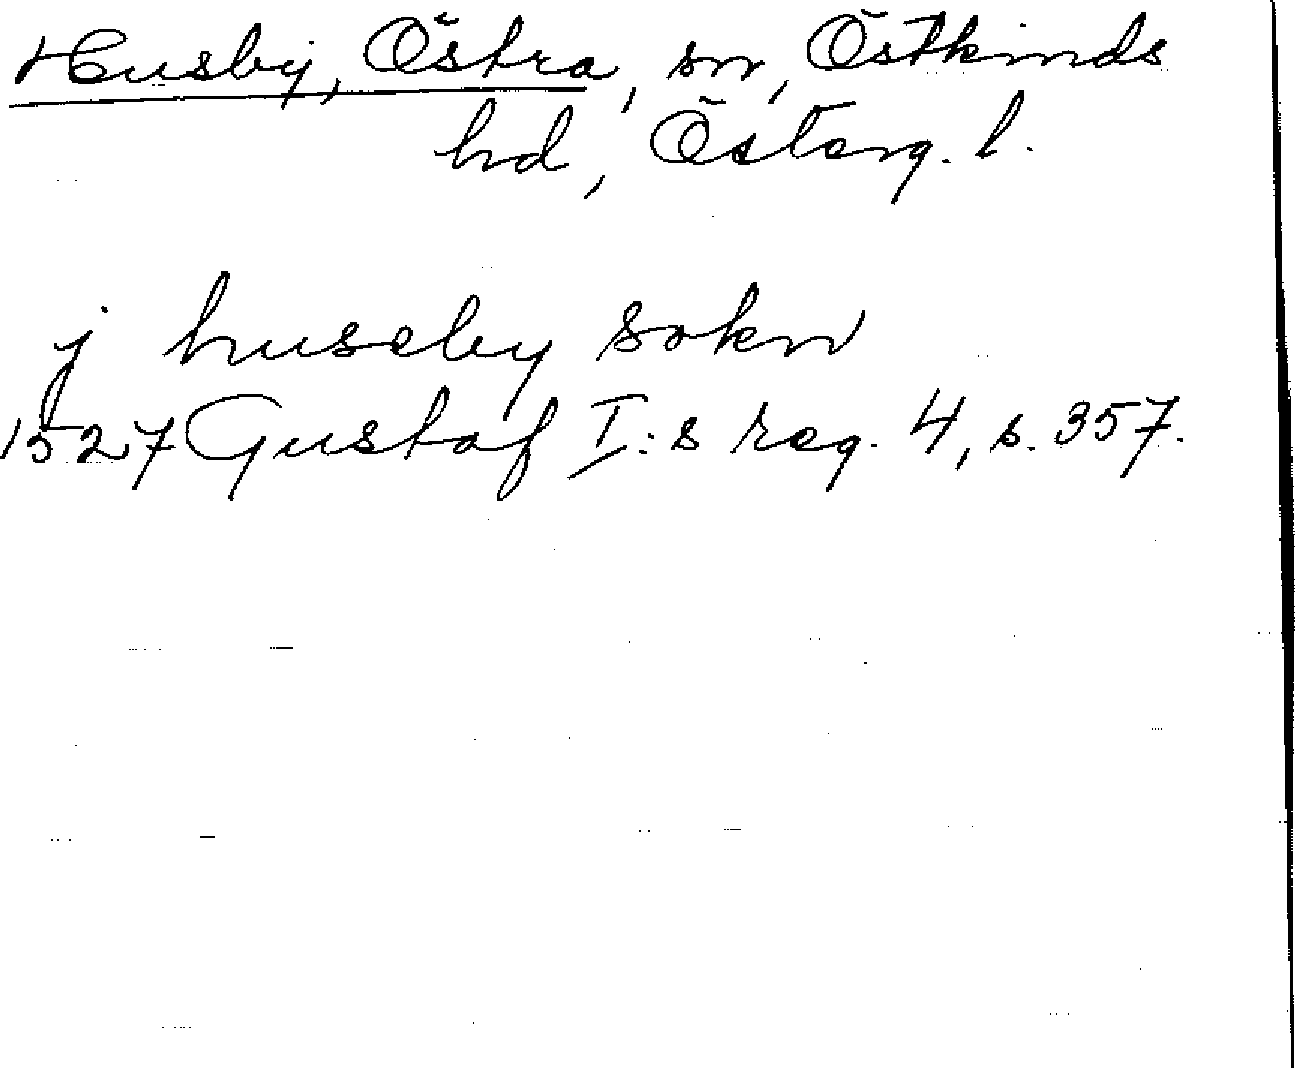 Husby, Östra, sn, Östkinds
hd, Österg. l.
j huseby sokn
1527 Gustaf I:s reg. 4, s. 357.